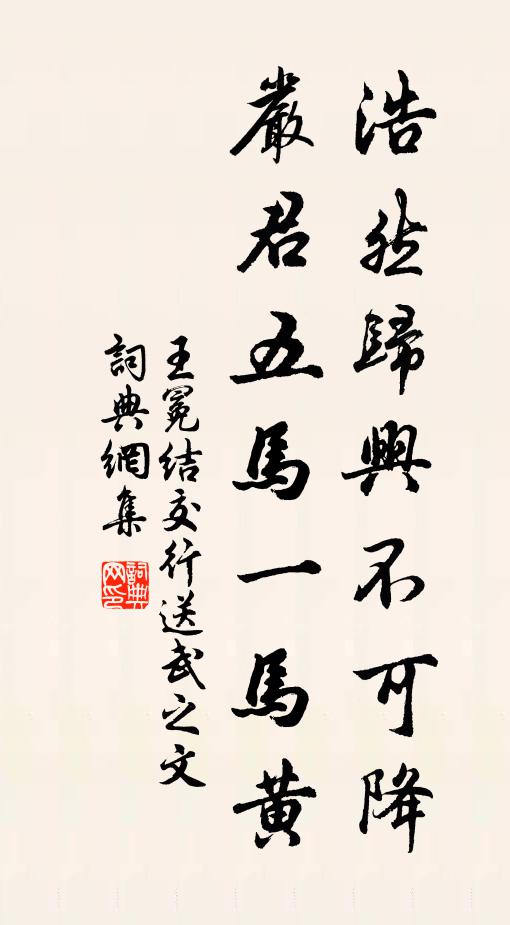 浩然歸興不可降
嚴君五馬一馬黃
王冕結交行送武之文
詞典網集
詞典
网印